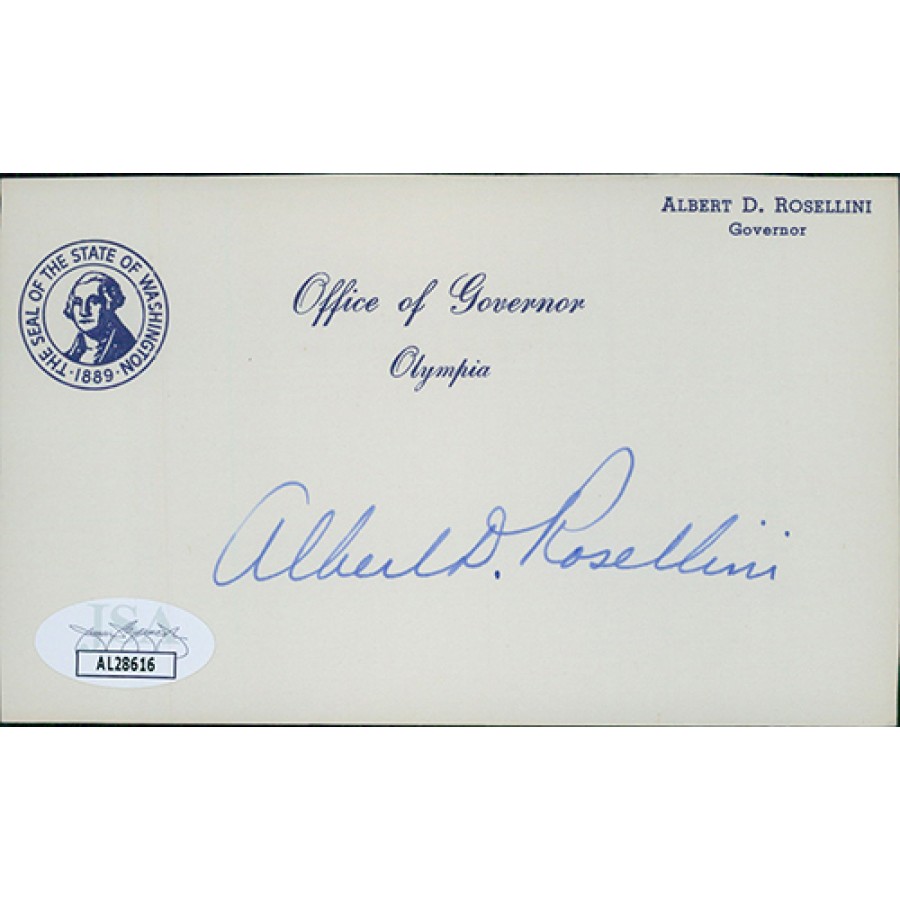 ALBERT D. ROSELLINI
Governor
THE SEAL OF THE STATE OF WASHINGTON
· 1889 ·
Office of Governor
Olympia
Albert D. Rosellini
JSA
AL28616